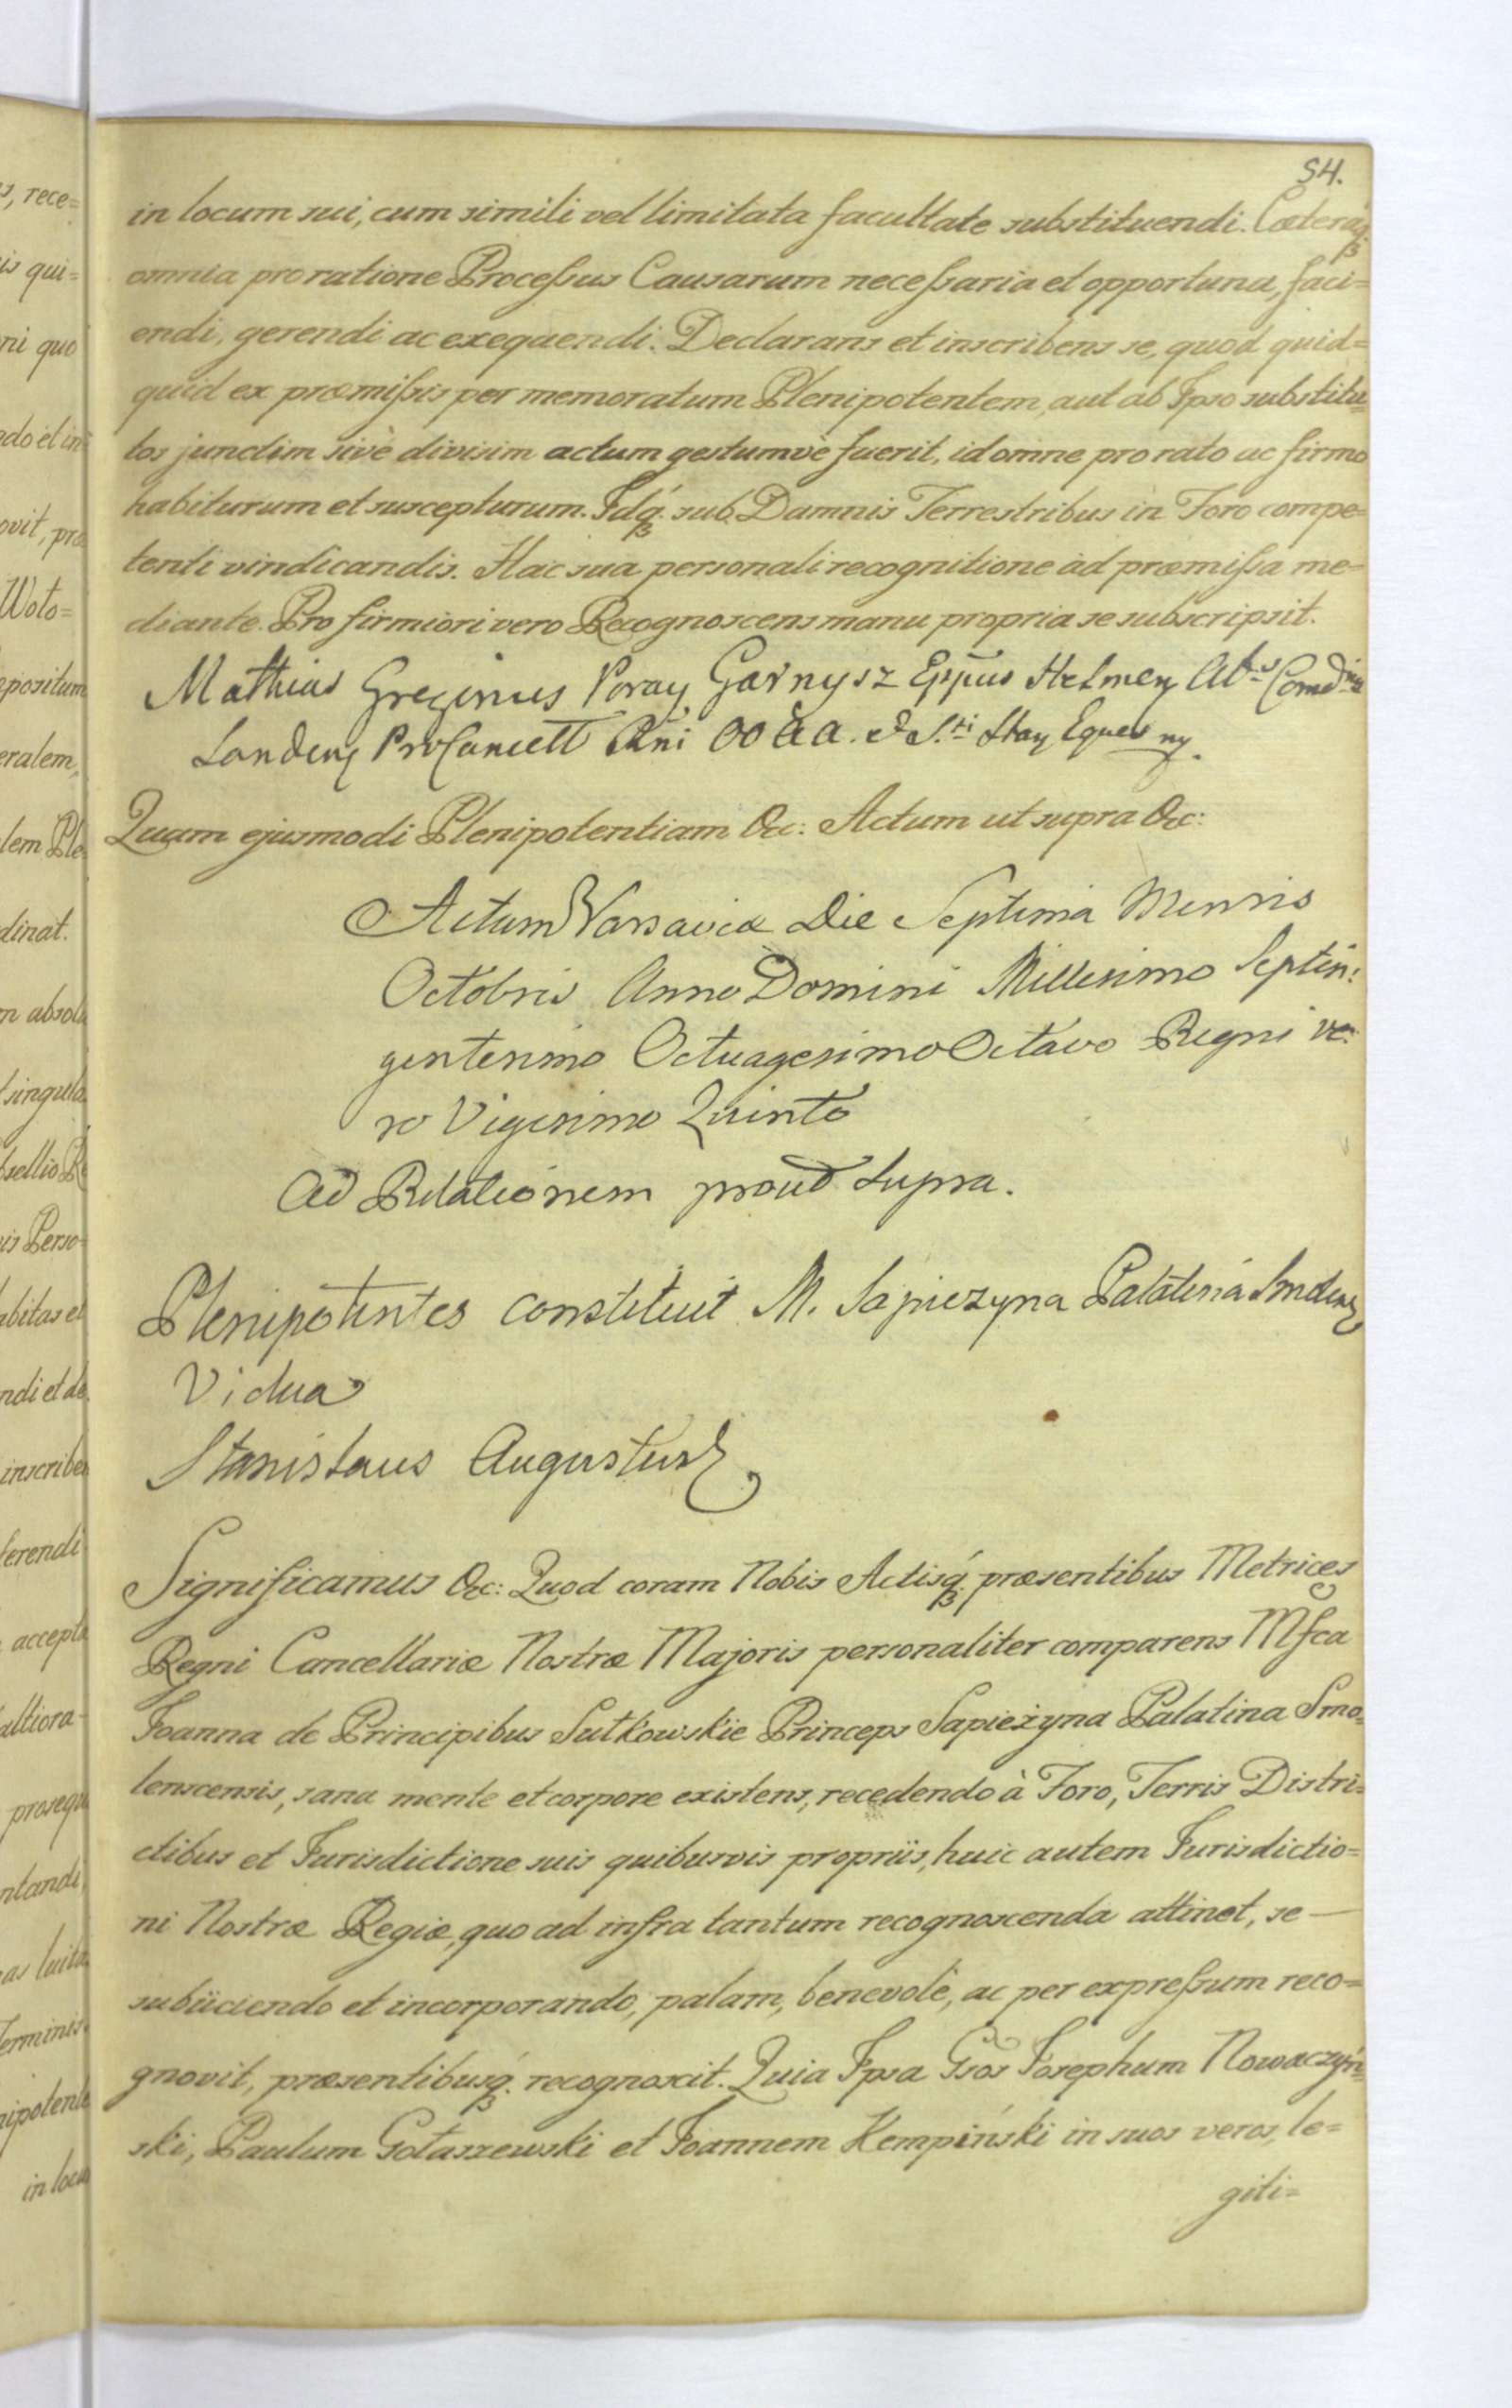 54.
in locum sui, cum simili vel limitata facultate substituendi. Cæteráq;
omnia pro ratione Processus Causarum necessaria et opportuna, faci=
endi, gerendi ac exequendi. Declarans et inscribens se, quod quid=
quid ex præmissis per memoratum Plenipotentem, aut ab Ipso substitu=
tos junctim sivè divisim actum gestumvè fuerit, id omne pro rato ac firmo
habiturum et suscepturum. Idq́; sub Damnis Terrestribus in Foro compe=
tenti vindicandis. Hac sua personali recognitione ad præmissa me=
diante. Pro firmiori vero Recognoscens manu propria se subscripsit.
Mathias Poray Garnysz Eppus Helmen
Landen ProCancell Rni OO a a. & S.ti Stan Eques
Quam ejusmodi Plenipotentiam &c: Actum ut supra &c:
Actum Varsaviæ Die Septima Mensis
Octobris Anno Domini Millesimo Septin:
gentesimo Octuagesimo Octavo Regni ve:
ro Vigesimo Quinto
Ad Relationem prout supra.
Plenipotentes constituit M. Sapiezyna Palatina Smolens
Vidua
Stanislaus Augustus
Significamus &c: Quod coram Nobis Actisq́; præsentibus Metrices
Regni Cancellariæ Nostræ Majoris personaliter comparens Mfca
Joanna de Principibus Sułkowskie Princeps Sapieżyna Palatina Smo=
lenscensis, sana mente et corpore existens, recedendo à Foro, Terris Distri=
ctibus et Jurisdictione suis quibusvis propriis, huic autem Jurisdictio=
ni Nostræ Regiæ, quo ad infra tantum recognoscenda attinet, se —
subiiciendo et incorporando, palam, benevolè, ac per expressum reco=
gnovit, præsentibusq́; recognoscit. Quia Ipsa Gsos Josephum Nowaczyń=
ski, Paulum Gołaszewski et Joannem Kempiński in suos veros, le=
giti=